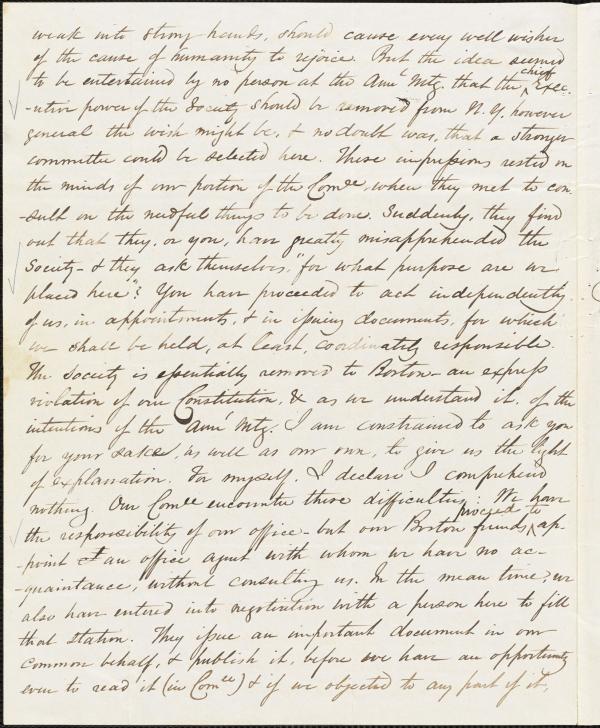 weak into strong hands, should cause every well wisher
of the cause of humanity to rejoice. But the idea seemed
to be entertained by no person at the Annl Mtg. that the chief exec-
-utive power of the Society should be removed from N.Y. however
general the wish might be, & no doubt was, that a stronger
committee could be selected here. These impressions rested on
the minds of our portion of the Comee, when they met to con-
-sult on the needful things to be done. Suddenly, they find
out that they, or you, have greatly misapprehended the
Society - & they ask themselves, "for what purpose are we
placed here"? You have proceeded to act independently
of us, in appointments, & in issuing documents, for which
we shall be held, at least, coordinately responsible.
The Society is essentially removed to Boston - an express
violation of our Constitution, & as we understand it, of the
intentions of the Annl Mtg. I am constrained to ask you
for your sakes, as well as our own, to give us the light
of explanation. For myself, I declare I comprehend
nothing. Our Comee encounter these difficulties: We have
the responsibility of our office - but our Boston friends, proceed to ap-
-point an office agent with whom we have no ac-
-quaintance, without consulting us. In the mean time, we
also have entered into negotiation with a person here to fill
that station. They issue an important document in our
common behalf, & publish it, before we have an opportunity
even to read it (in Comee) & if we objected to any part of it,